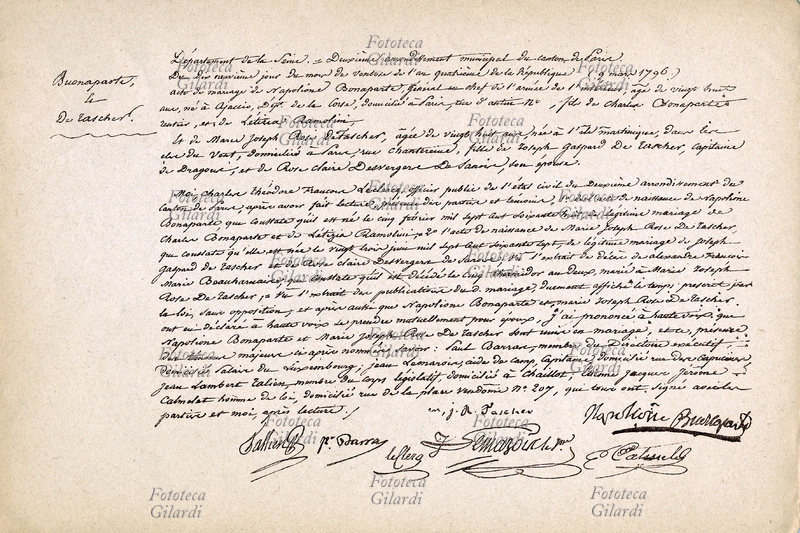 Buonaparte,
&
De Tascher.
Département de la Seine. = Deuxième arrondissement municipal du canton de Paris
Du dix neuvième jour du mois de ventose de l'an quatrième de la République (9 mars 1796.)
acte de mariage de Napolione Bonaparte, général en chef de l'armée de l' âgé de vingt huit
ans, né à Ajaccio, Dépt. de la Corse, domicilié à Paris, rue d'antin No , fils de Charles Bonaparte
rentier, et de Letizia Ramolini,
Et de Marie Joseph Rose DeTascher, âgée de vingt huit ans, née à l'île martinique, dans les
îles du Vent, domiciliée à Paris rue chantereine, fille de Joseph Gaspard de Tascher, capitaine
de Dragons, et de Rose claire Desvergers De Sanois, son épouse.
Moi Charles Théodore François Leclercq officier public de l'état civil du Deuxième arrondissement du
canton de Paris, après avoir fait lecture en présence des parties et témoins, 1o de l'acte de naissance de Napolione
Bonaparte qui constate qu'il est né le cinq février mil sept cent soixante huit, de légitime mariage de
Charles Bonaparte et de Létizia Ramolini; 2o l'acte de naissance de Marie Joseph Rose De Tascher,
qui constate qu'elle est née le vingt trois juin mil sept cent soixante sept, de légitime mariage de Joseph
Gaspard de Tascher et de Rose claire Desvergers de Sanois; vu l'extrait de décès de alexandre François
Marie Beauharnais, qui constate qu'il est décédé le cinq thermidor an deux, marié à Marie Joseph
Rose De Tascher; vu l'extrait des publications du d. mariage, duement affiché le temps prescrit par
la loi, sans opposition; et après aussi que Napolione Bonaparte et marie Joseph Rose De Tascher
ont eu déclaré à haute voix se prendre mutuellement pour époux, j'ai prononcé à haute voix que
Napolione Bonaparte et Marie Joseph Rose De Tascher sont unis en mariage, et ce, présence
des témoins majeurs ci après nommés, savoir: Paul Barras, membre du Directoire exécutif,
domicilié Palais du Luxembourg; jean Lemarois, aide de camp, capitaine, domicilié rue des capucines;
jean Lambert Talien, membre du corps législatif, domicilié à Chaillot; Etienne Jacques Jérôme
Calmelet homme de loi, domicilié rue de la place vendome No 207, qui tous ont signé avec les
parties et moi, après lecture./
m. j. R. Tascher
Napolione Buonaparte
Tallien P. Barras
leClerq J Lemarois
E Calmelet
Fototeca
Gilardi
Fototeca
Gilardi
Fototeca
Gilardi